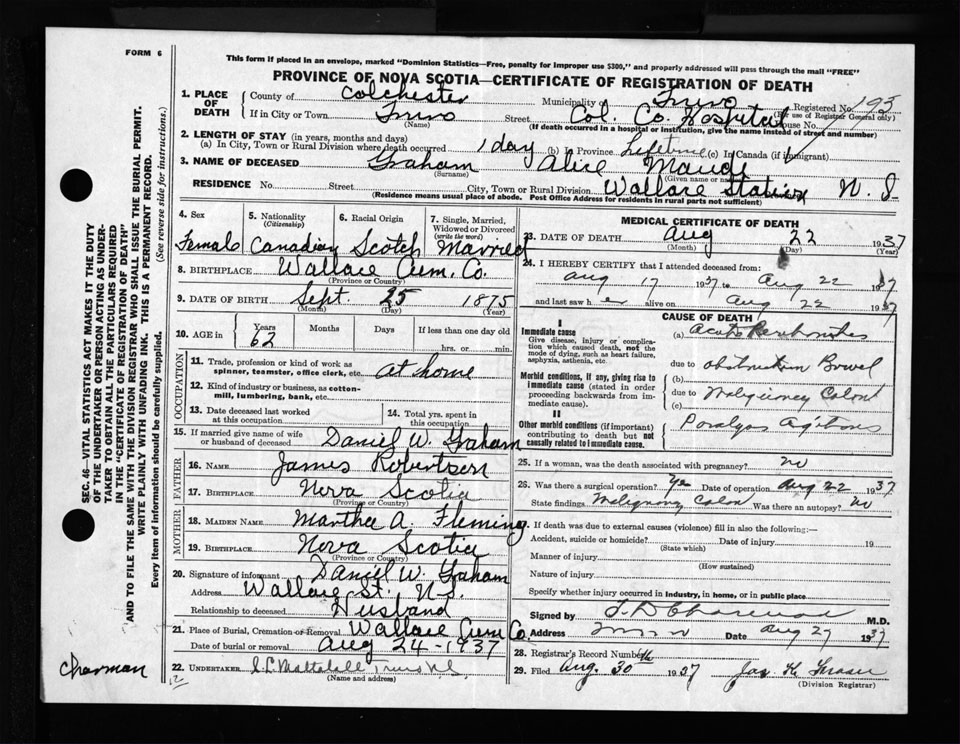 FORM 6
This form if placed in an envelope, marked "Dominion Statistics—Free, penalty for improper use $300," and properly addressed will pass through the mail "FREE"
PROVINCE OF NOVA SCOTIA—CERTIFICATE OF REGISTRATION OF DEATH
1. PLACE OF DEATH
County of Colchester Municipality of Truro Registered No. 195
(For use of Registrar General only)
If in City or Town Truro (Name) Street Col. Co. Hospital House No.
(If death occurred in a hospital or institution, give the name instead of street and number)
2. LENGTH OF STAY (in years, months and days)
(a) In City, Town or Rural Division where death occurred 1 day (b) In Province Lifetime (c) In Canada (if immigrant)
3. NAME OF DECEASED Graham Alice Maude
(Surname) (Given or name)
RESIDENCE No. Street City, Town or Rural Division Wallace Station N. S
(Residence means usual place of abode. Post Office Address for residents in rural parts not sufficient)
4. Sex Female
5. Nationality (Citizenship) Canadian
6. Racial Origin Scotch
7. Single, Married, Widowed or Divorced (write the word) Married
8. BIRTHPLACE Wallace Cum. Co.
(Province or Country)
9. DATE OF BIRTH Sept. 25 1875
(Month) (Day) (Year)
10. AGE in Years 62 Months Days If less than one day old
hrs. or min.
OCCUPATION
11. Trade, profession or kind of work as spinner, teamster, office clerk, etc. at home
12. Kind of industry or business, as cotton-mill, lumbering, bank, etc.
13. Date deceased last worked at this occupation
14. Total yrs. spent in this occupation
15. If married give name of wife or husband of deceased Daniel W. Graham
FATHER
16. NAME James Robertson
17. BIRTHPLACE Nova Scotia
(Province or Country)
MOTHER
18. MAIDEN NAME Martha A. Fleming
19. BIRTHPLACE Nova Scotia
(Province or Country)
20. Signature of informant Daniel W. Graham
Address Wallace St. N.S.
Relationship to deceased Husband
21. Place of Burial, Cremation or Removal Wallace Cum Co.
Date of burial or removal Aug 24 - 1937
22. UNDERTAKER
(Name and address)
MEDICAL CERTIFICATE OF DEATH
23. DATE OF DEATH Aug 22 1937
(Month) (Day) (Year)
24. I HEREBY CERTIFY that I attended deceased from:
aug 17 1937 to Aug 22 1937
and last saw her alive on Aug 22 1937
CAUSE OF DEATH
I
Immediate cause
Give disease, injury or complication which caused death, not the mode of dying, such as heart failure, asphyxia, asthenia, etc.
(a) Acute Peritonitis
Morbid conditions, if any, giving rise to immediate cause (stated in order proceeding backwards from immediate cause).
due to (b) obstruction Bowel
due to (c) Malignancy Colon
II
Other morbid conditions (if important) contributing to death but not causally related to immediate cause.
Paralysis Agitans
25. If a woman, was the death associated with pregnancy? no
26. Was there a surgical operation? Yes Date of operation Aug 22 1937
State findings Malignancy Colon Was there an autopsy? no
27. If death was due to external causes (violence) fill in also the following:—
Accident, suicide or homicide? Date of injury 19
(State which)
Manner of injury
(How sustained)
Nature of injury
Specify whether injury occurred in industry, in home, or in public place
Signed by M.D.
Address Truro Date aug 27 1937
28. Registrar's Record Number
29. Filed Aug. 30 1937 Jas K. Fraser
(Division Registrar)
SEC. 46—VITAL STATISTICS ACT MAKES IT THE DUTY OF THE UNDERTAKER OR PERSON ACTING AS UNDERTAKER TO OBTAIN ALL THE PARTICULARS REQUIRED IN THE "CERTIFICATE OF REGISTRATION OF DEATH" AND TO FILE THE SAME WITH THE DIVISION REGISTRAR WHO SHALL ISSUE THE BURIAL PERMIT.
WRITE PLAINLY WITH UNFADING INK. THIS IS A PERMANENT RECORD.
Every item of information should be carefully supplied. (See reverse side for instructions.)
Charman
12